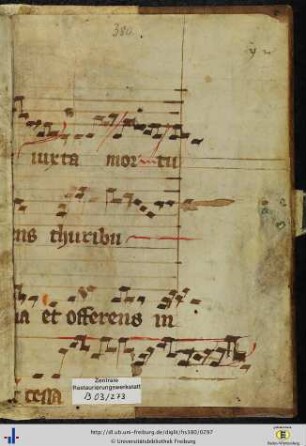 380
iuxta mortu
ns thuribu
ia et offerens in
t cessa
Zentrale
Restaurierungswerkstatt
B 03/273
http://dl.ub.uni-freiburg.de/diglit/hs380/0297
© Universitätsbibliothek Freiburg